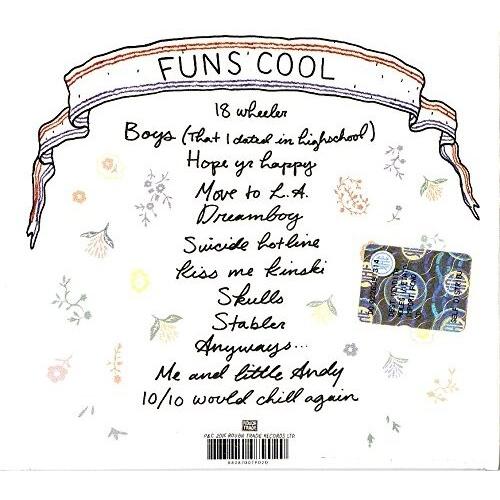 FUNS COOL
18 wheeler
Boys (That I dated in highschool)
Hope yr happy
Move to L.A.
Dreamboy
Suicide hotline
Kiss me Kinski
Skulls
Stabler
Anyways...
Me and little Andy
10/10 would chill again
ROUGH TRADE
P&C 2015 ROUGH TRADE RECORDS LTD.